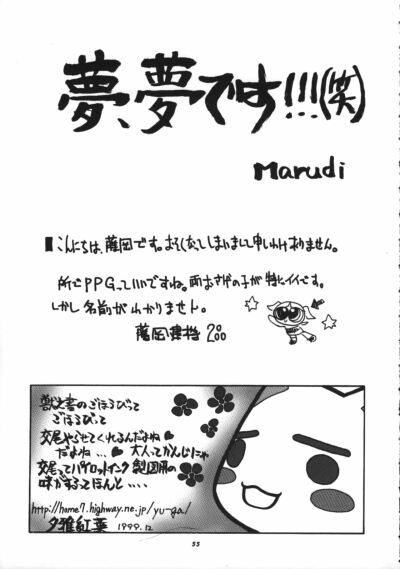 夢、夢です!!!(笑)
Marudi
■こんにちは、薩岡です。おそくなってしまいまして申しわけありません。
所でPPGっていいですね。両おさげの子が特にイイです。
しかし名前がわかりません。
2000
ごほうびって
ごほうびって
交尾やらせてくれるんだよね♥
だよね…♥ 大人ってかんじじゃ
交尾ってパイロットインク製図用の
味がするってほんと‥‥
http://home7.highway.ne.jp/yu-ga/
夕雅紅葉 1999.12
55